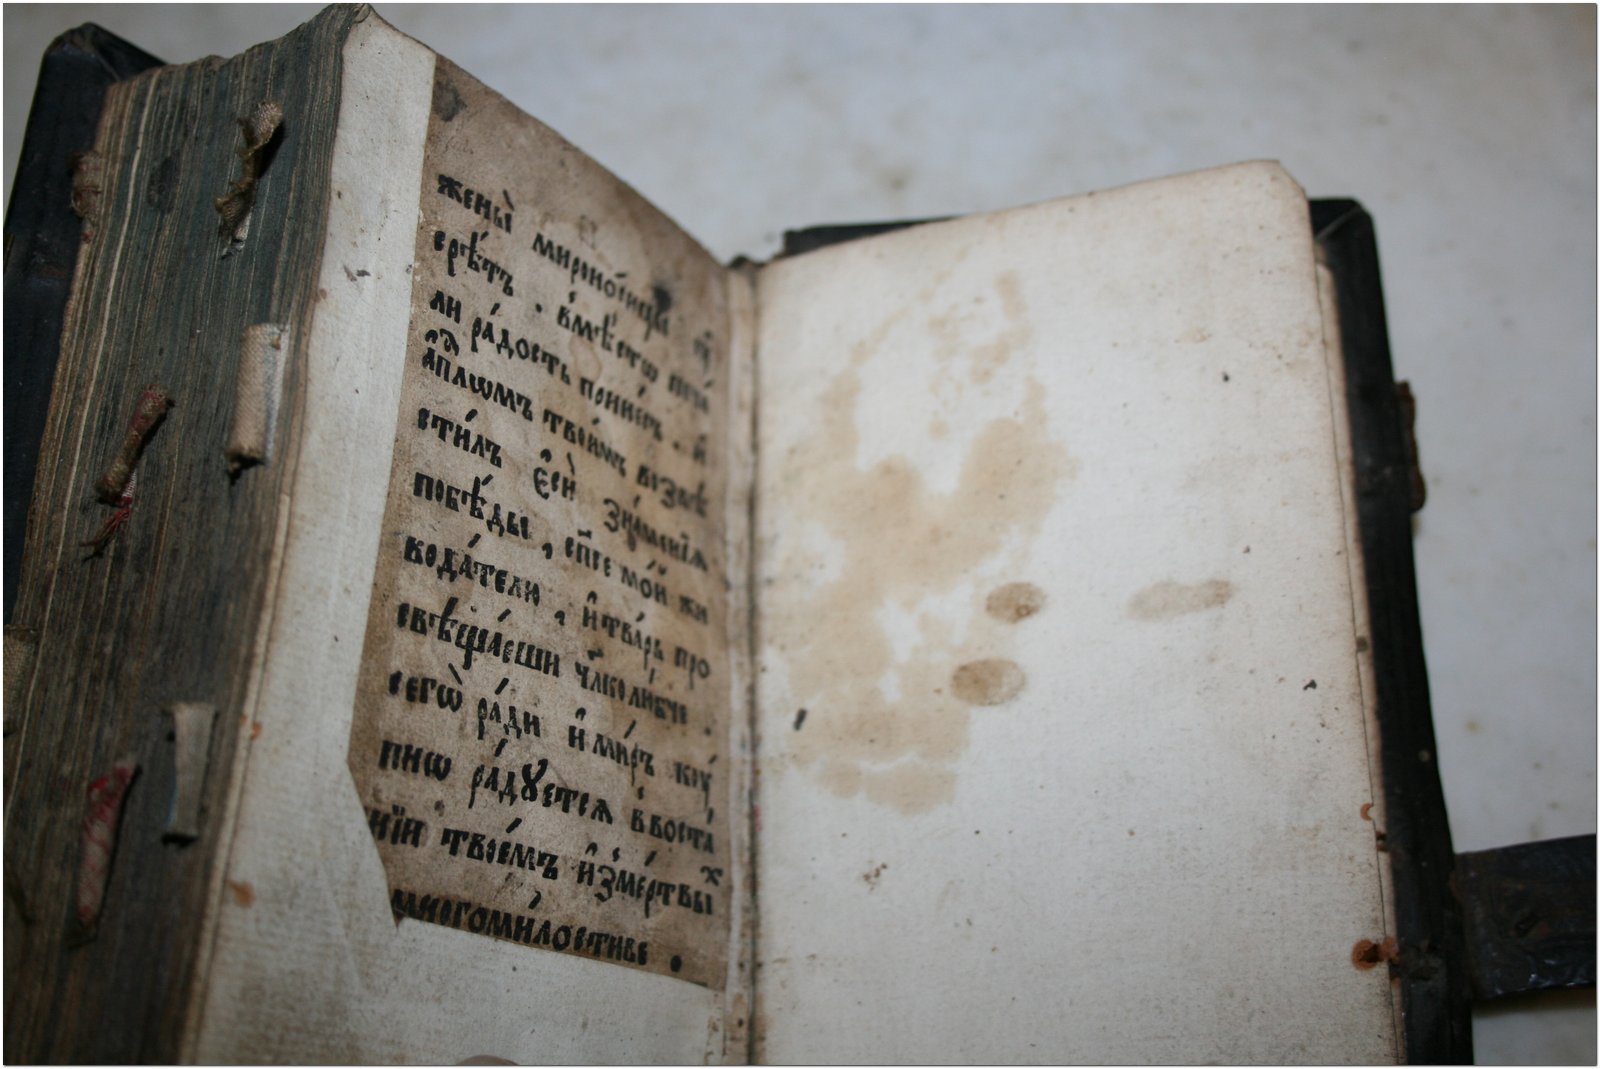 жены̀ мѵроно́сицы ᲂу҆
срѣ́тъ . в мѣ́стѡ печа́
ли ра́дость прине́съ . и҆
а҆пⷭ҇лѡмъ твои̑мъ возвѣ
сти́лъ є҆сѝ зна́менїѧ
побѣ́ды , сп҃се мо́й жи
вода́телю , и҆ тва́рь про
свѣща́еши чл҃колю́бче .
сегѡ̀ ра́ди и҆ ми́ръ кꙋ́
пнѡ ра́дꙋетсѧ в воста́
нїи твое́мъ и҆з̾ ме́ртвыⷯ
многоми́лостиве .